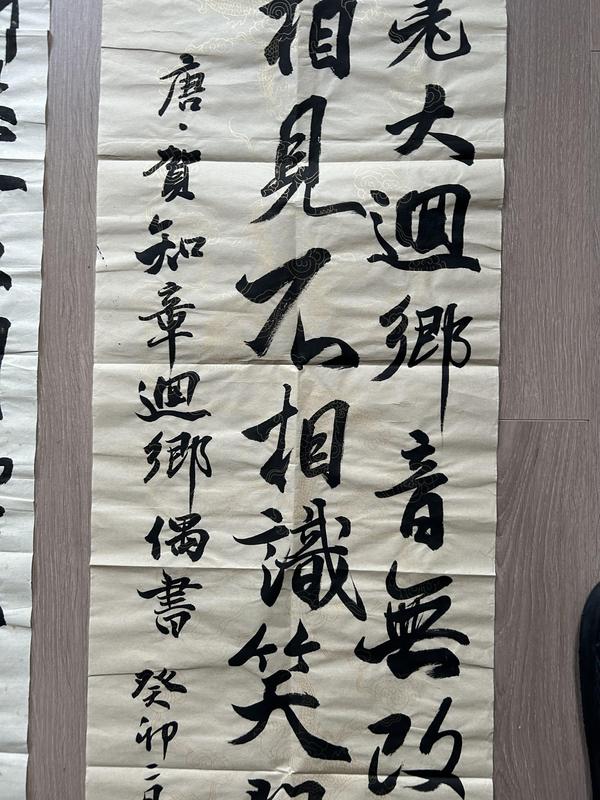 老大迴鄉音無改
相見不相識笑
唐、賀知章迴鄉偶書 癸卯二月